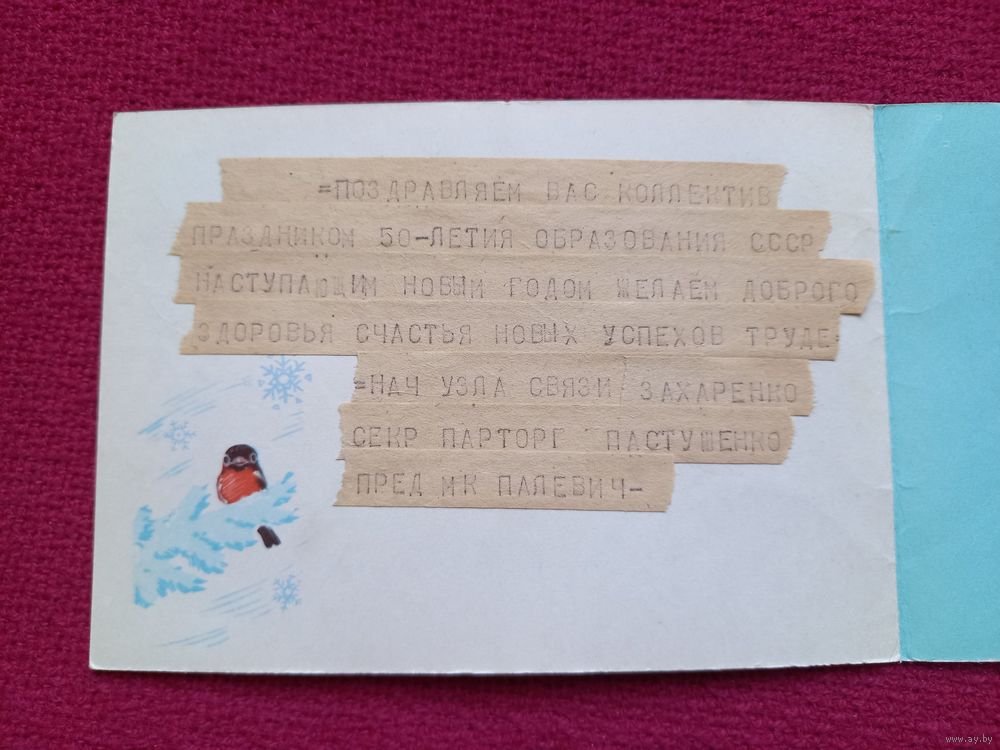 =ПОЗДРАВЛЯЕМ ВАС КОЛЛЕКТИВ
ПРАЗДНИКОМ 50-ЛЕТИЯ ОБРАЗОВАНИЯ СССР
НАСТУПАЮЩИМ НОВЫМ ГОДОМ ЖЕЛАЕМ ДОБРОГО
ЗДОРОВЬЯ СЧАСТЬЯ НОВЫХ УСПЕХОВ ТРУДЕ
=НАЧ УЗЛА СВЯЗИ ЗАХАРЕНКО
СЕКР ПАРТОРГ ПАСТУШЕНКО
ПРЕД МК ПАЛЕВИЧ-
www.ay.by